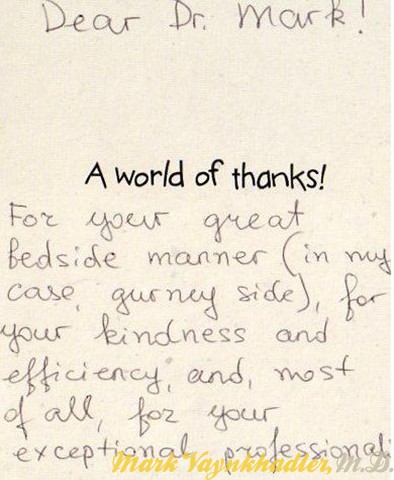 Dear Dr. Mark!
A world of thanks!
For your great
bedside manner (in my
case, gurney side), for
your kindness and
efficiency, and, most
of all, for your
exceptional professionali
Mark Vaynkhadler, M.D.